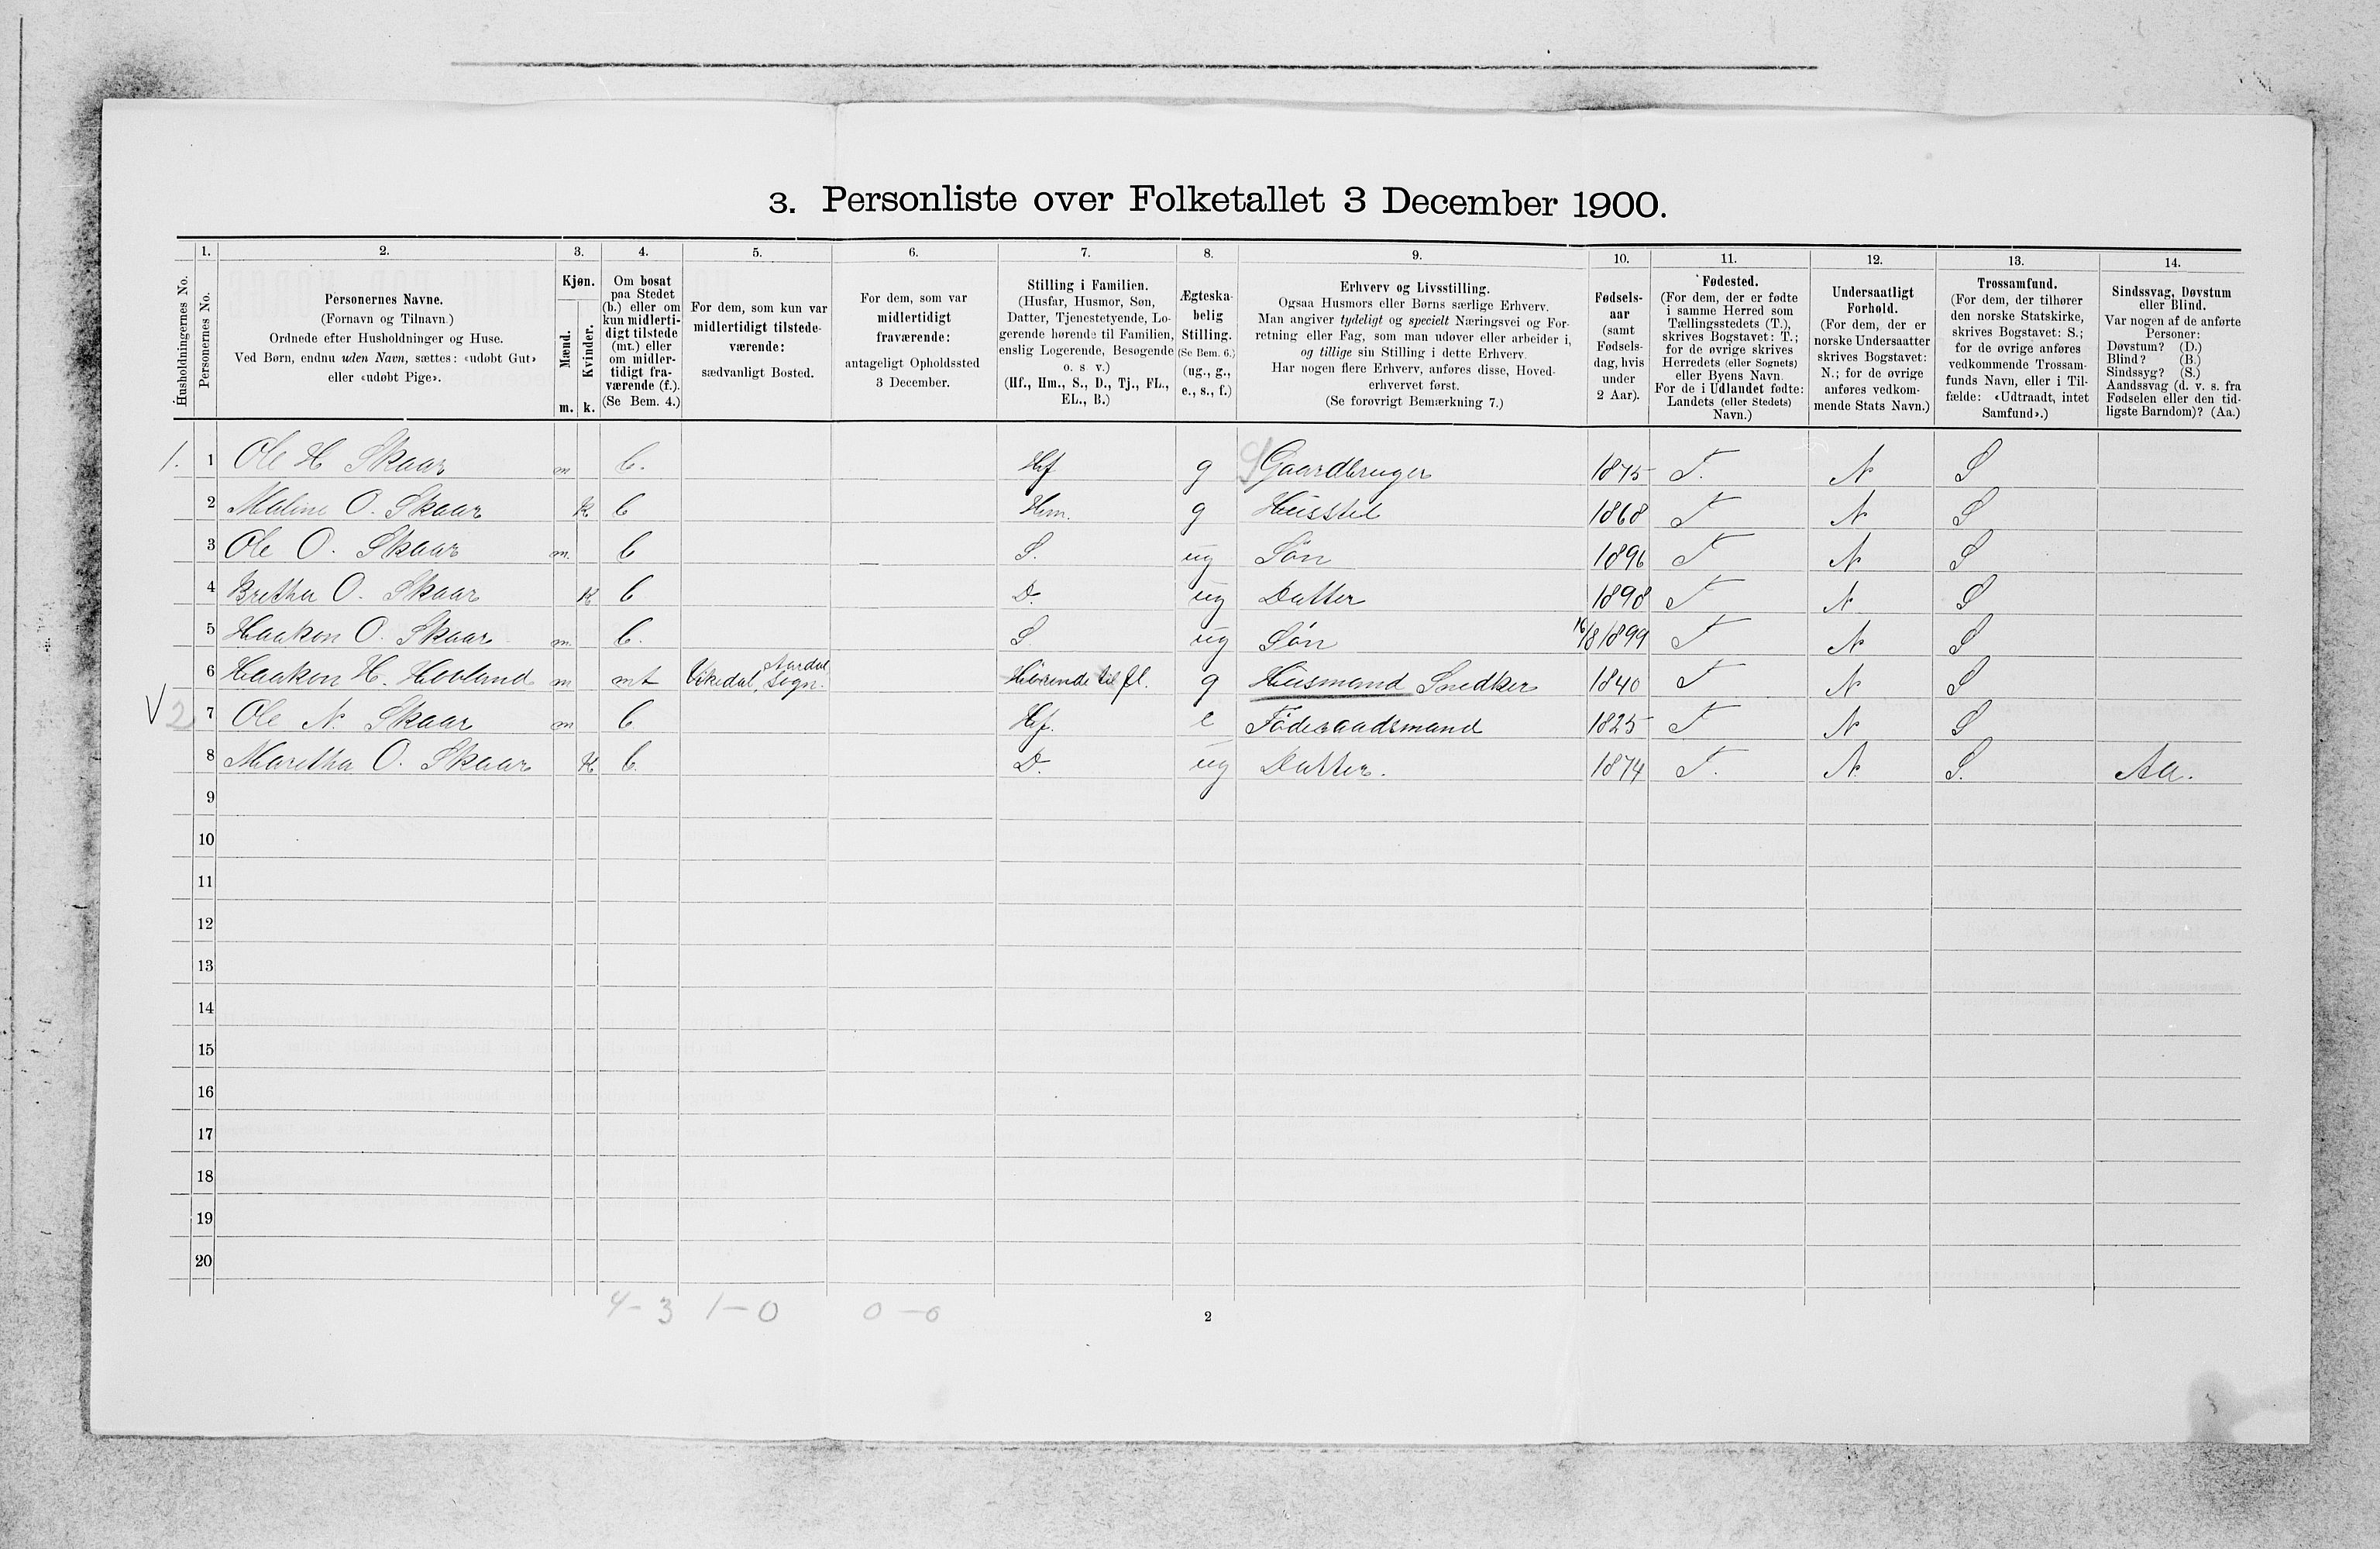 3. Personliste over Folketallet 3 December 1900.
1. 2. 3. 4. 5. 6. 7. 8. 9. 10. 11. 12. 13. 14.
Husholdningernes No.
Personernes No.
Personernes Navne.
(Fornavn og Tilnavn.)
Ordnede efter Husholdninger og Huse.
Ved Børn, endnu uden Navn, sættes: «udøbt Gut»
eller «udøbt Pige».
Kjøn.
Mænd.
Kvinder.
m. k.
Om bosat
paa Stedet
(b.) eller om
kun midlerti-
digt tilstede
(mt.) eller
om midler-
tidigt fra-
værende (f.).
(Se Bem. 4.)
For dem, som kun var
midlertidigt tilstede-
værende:
sædvanligt Bosted.
For dem, som var
midlertidigt
fraværende:
antageligt Opholdssted
3 December.
Stilling i Familien.
(Husfar, Husmor, Søn,
Datter, Tjenestetyende, Lo-
gerende hørende til Familien,
enslig Logerende, Besøgende
o. s. v.)
(Hf., Hm., S., D., Tj., FL.,
EL., B.)
Ægteska-
belig
Stilling.
(Se Bem. 6.)
(ug., g.,
e., s., f.)
Erhverv og Livsstilling.
Ogsaa Husmors eller Børns særlige Erhverv.
Man angiver tydeligt og specielt Næringsvei og For-
retning eller Fag, som man udøver eller arbeider i,
og tillige sin Stilling i dette Erhverv.
Har nogen flere Erhverv, anføres disse, Hoved-
erhvervet først.
(Se forøvrigt Bemærkning 7.)
Fødsels-
aar
(samt
Fødsels-
dag, hvis
under
2 Aar).
Fødested.
(For dem, der er fødte
i samme Herred som
Tællingsstedets (T.),
skrives Bogstavet: T.;
for de øvrige skrives
Herredets (eller Sognets)
eller Byens Navn.
For de i Udlandet fødte:
Landets (eller Stedets)
Navn.)
Undersaatligt
Forhold.
(For dem, der er
norske Undersaatter
skrives Bogstavet:
N.; for de øvrige
anføres vedkom-
mende Stats Navn.)
Trossamfund.
(For dem, der tilhører
den norske Statskirke,
skrives Bogstavet: S.;
for de øvrige anføres
vedkommende Trossam-
funds Navn, eller i Til-
fælde: «Udtraadt, intet
Samfund».)
Sindssvag, Døvstum
eller Blind.
Var nogen af de anførte
Personer:
Døvstum? (D.)
Blind? (B.)
Sindssyg? (S.)
Aandssvag (d. v. s. fra
Fødselen eller den tid-
ligste Barndom)? (Aa.)
1. 1 Ole H Skaar m b. Hf g Gaardbruger 1875 T. N S
2 Maline O. Skaar k b Hm. g Husstel 1868 T N S
3 Ole O. Skaar m. b S. ug Søn 1896 T N S
4 Bretha O. Skaar k b D. ug Datter 1898 T N S
5 Haakon O. Skaar m. b. S. ug Søn 16/8 1899 T N S
6 Haakon H. Hovland m mt Vikedal, Aardal Sogn. Hörende til fl. g Husmand Snedker 1840 T N S
V 2 7 Ole N. Skaar m b Hf. e Föderaadsmand 1825 T N S
8 Maretha O. Skaar k b. D. ug Datter. 1874 T. N S. Aa.
9
10
11
12
13
14
15
16
17
18
19
20
4-3 1-0 0-0
2